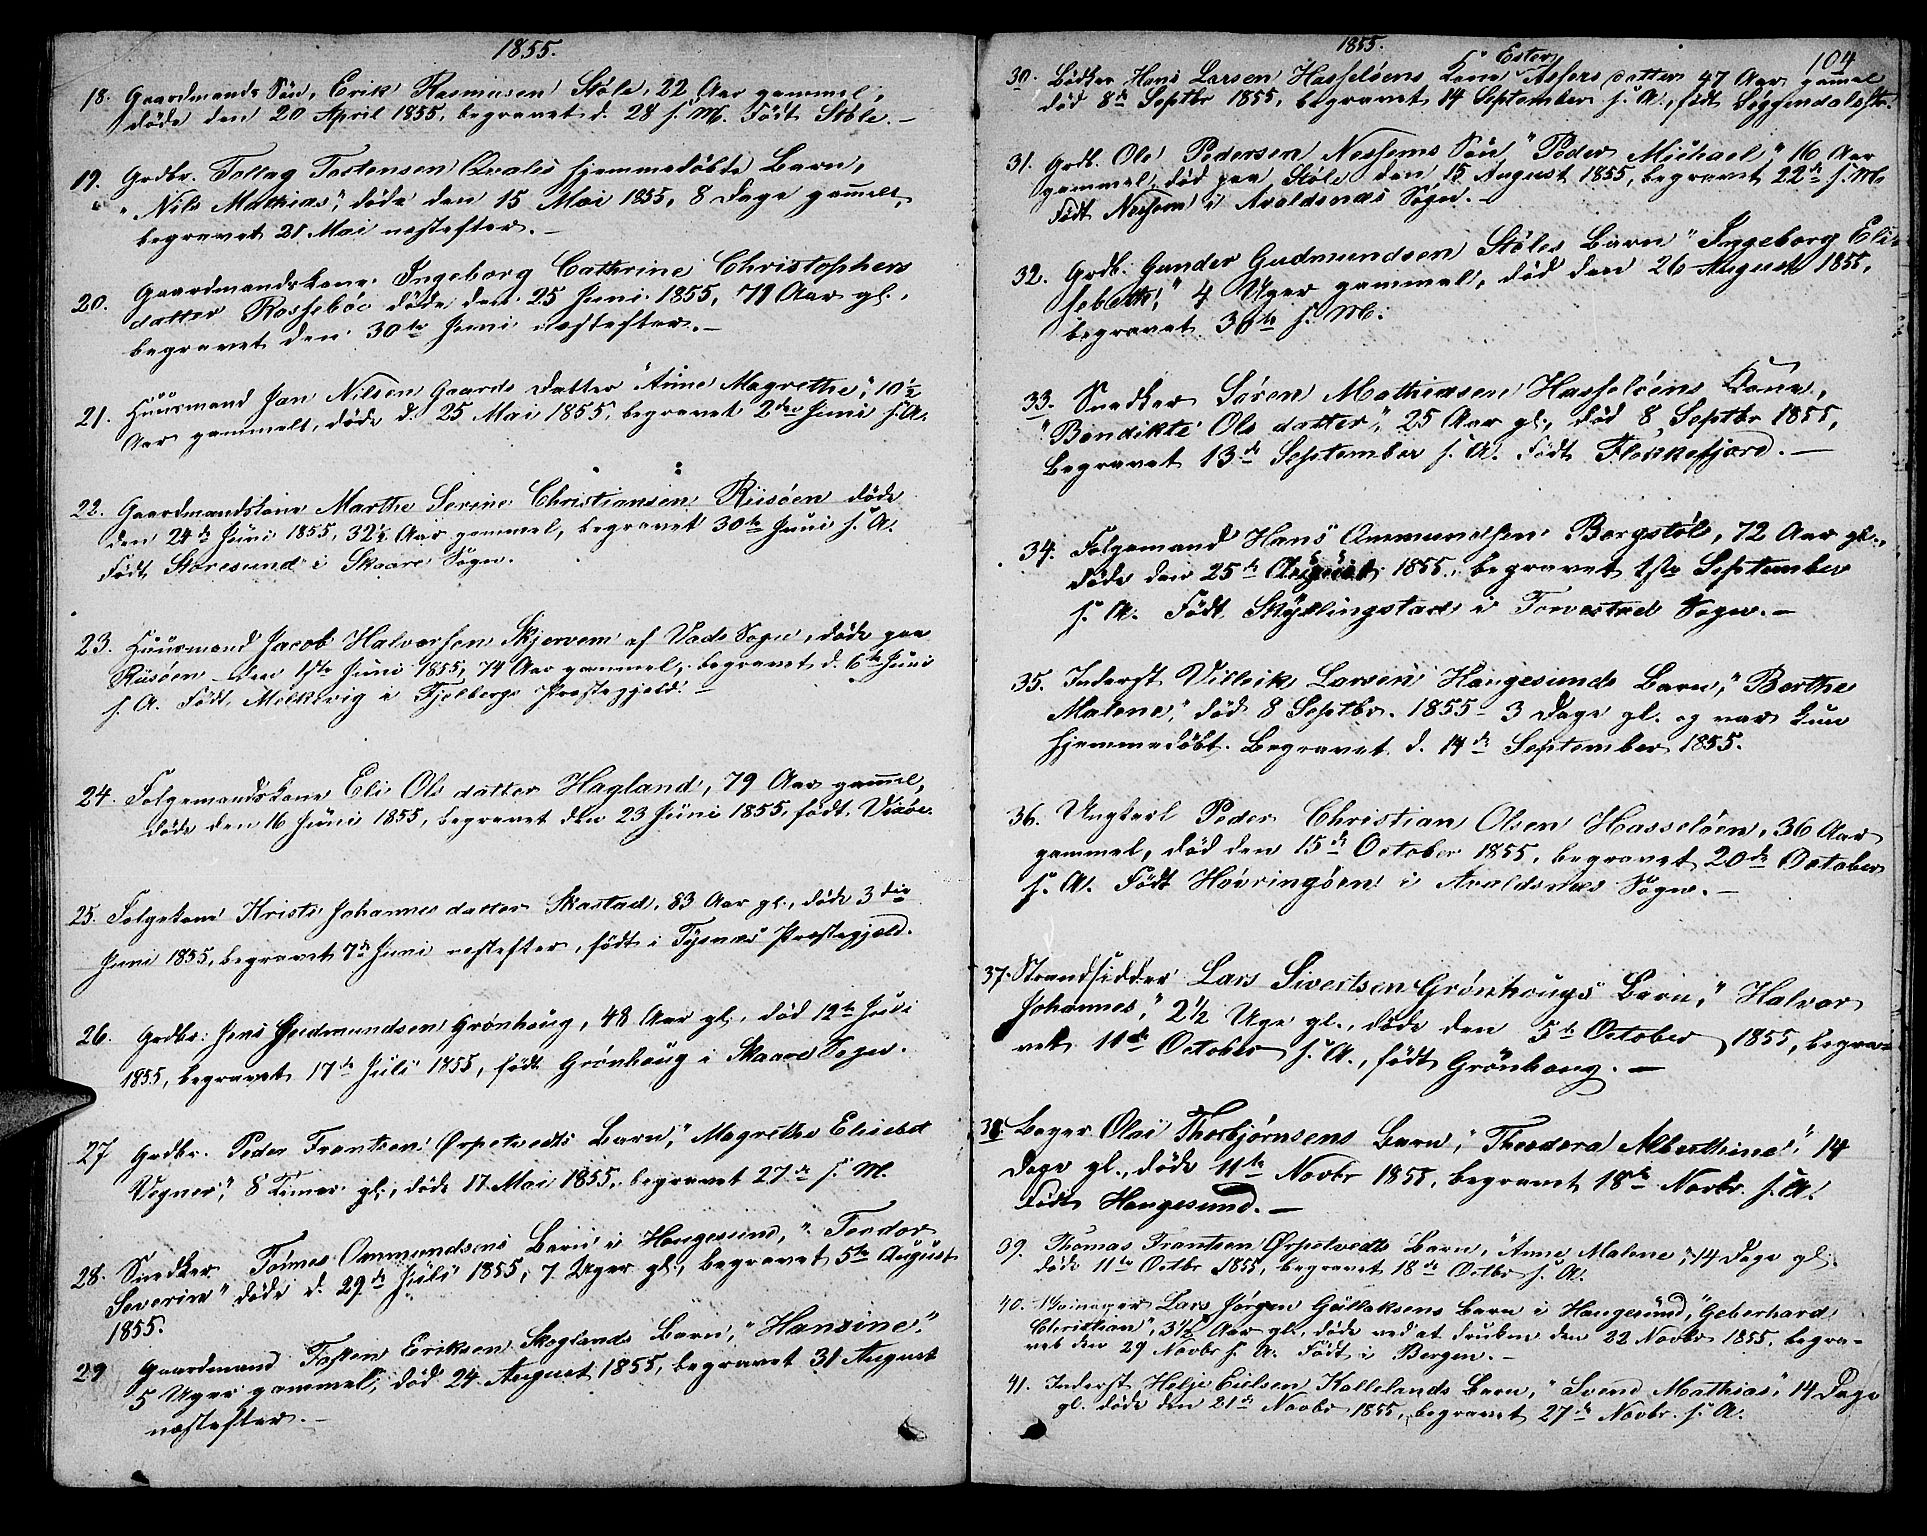 1855.
18. Gaardmands Søn, Erik Rasmusen Støle, 22 Aar gammel,
døde den 20 April 1855, begravet d. 28 s. M. Født Støle. —
19. Grdbr. Tollag Tostensen Qvales hjemmedøbte Barn,
"Nils Mathias", døde den 15 Mai 1855, 8 Dage gam̄elt,
begravet 21 Mai nestefter. —
20. Gaardmandskone Ingeborg Cathrine Christophers
datter Rossebøe døde den 25 Juni 1855, 71 Aar gl.,
begravet den 30te Juni nestefter. —
21. Huusmand Jan Nilsen Gaards Datter "Anne Magrethe", 10½
Aar gammelt, døde d. 25 Mai 1855, begravet 2den Juni s. A.
22. Gaardmandskone Marthe Serine Christiansen Riisøen døde
den 24de Juni 1855, 32½ Aar gammel, begravet 30te Juni s. A.
Født Storesund i Skaare Sogn.
23. Huusmand Jacob Halvorsen Skjervem af Vads Sogn, døde paa
Riisøen den 1ste Juni 1855, 74 Aar gammel, begravet d. 6te Juni
s. A. Født Mølkevig i Fjelbergs Præstegjeld. —
24. Folgemandskone Eli Ols datter Hagland, 79 Aar gam̄el,
døde den 16 Juni 1855, begravet den 23 Juni 1855, født Vixøe.
25. Folgekone Kristi Johannes datter Skastad, 83 Aar gl., døde 3die
Juni 1855, begravet 7de Juni nestefter, født i Tysnæs Præstegjeld.
26. Grdbr. Jens Gudmundsen Grønhoug, 48 Aar gl., død 12te Juli
1855, begravet 17de Juli 1855, født Grønhoug i Skaare Sogn.
27 Grdbr. Peder Frantsen Ørpetvedts Barn, "Magrethe Elisebet
Vegner", 8 Timer gl., døde 17 Mai 1855, begravet 27de s. M.
28. Snedker Tønnes Ommundsens Barn i Haugesund, "Teodor
Severin" døde d. 29de Juli 1855, 7 Uger gl., begravet 5te August
1855.
29 Gaardmand Tosten Eriksen Skoglands Barn, "Hansine".
5 Uger gammel, død 24 August 1855, begravet 31 August
næstefter. —
1855.
104
Ester
30. Bødker Hans Larsen Hasseløens Kone Assers datter 47 Aar gam̄el
død 8de Septbr 1855, begravet 14 September s. A., født Siggendalsstr.
31. Grdb. Ole Pedersen Nessems Søn "Peder Michael", 16 Aar
gammel, død paa Støle den 15 August 1855, begravet 22de s. M.
Født Nessem i Avaldsnæs Sogn. —
32. Grdb. Gunder Gudmundsen Støles Barn "Ingeborg Eli-
sebeth", 4 Uger gammel, død den 26 August 1855,
begravet 30te s. M.
33. Snedker Søren Mathiasen Hasseløens Kone,
"Bendikte Ols datter", 25 Aar gl., død 8 Septbr 1855,
Begravet 13de September s. A. Født Flekkefjord. —
34. Folgemand Hans Ommundsen Borgstøl, 72 Aar gl.,
døde den 25de August 1855, begravet 1ste September
s. A. Født Støcklingstad i Torvestad Sogn. —
35. Inderst Villeik Larsen Haugesunds Barn, "Berthe
Malene", død 8 Septbr. 1855 3 Dage gl. og var kun
hjemmedøbt. Begravet d. 14de September 1855.
36. Ungkarl Peder Christian Olsen Hasseløen, 36 Aar
gammel, død den 15de October 1855, begravet 20de October
s. A. Født Høvringøen i Avaldsnæs Sogn. —
37. Strandsidder Lars Sivertsen Grønhougs Barn, "Halvor
Johannes", 2½ Uge gl., døde den 5te October 1855, begra-
vet 11te October s. A., født Grønhaug. —
38. Bager Olai Thorbjørnsens Barn, "Theodora Alberthine", 14
Dage gl., døde 11te Novbr 1855, begravet 18de Novbr. s. A.
Født Haugesund. —
39. Thomas Frantsen Ørpetvedts Barn, "Anne Malene", 14 Dage gl.
døde 11te Octbr 1855, begravet 18de Octbr s. A.
40. Lars Jørgen Gullaksens Barn i Haugesund, "Geberhard
Christian", 3½ Aar gl., døde ved at drukne den 22 Novbr 1855, begra-
vet den 29 Novbr s. A. Født i Bergen. —
41. Inderst Helje Eielsen Kallelands Barn, "Svend Mathias", 14 Dage
gl. døde den 21de Novbr 1855, begravet 27de Novbr. s. A.